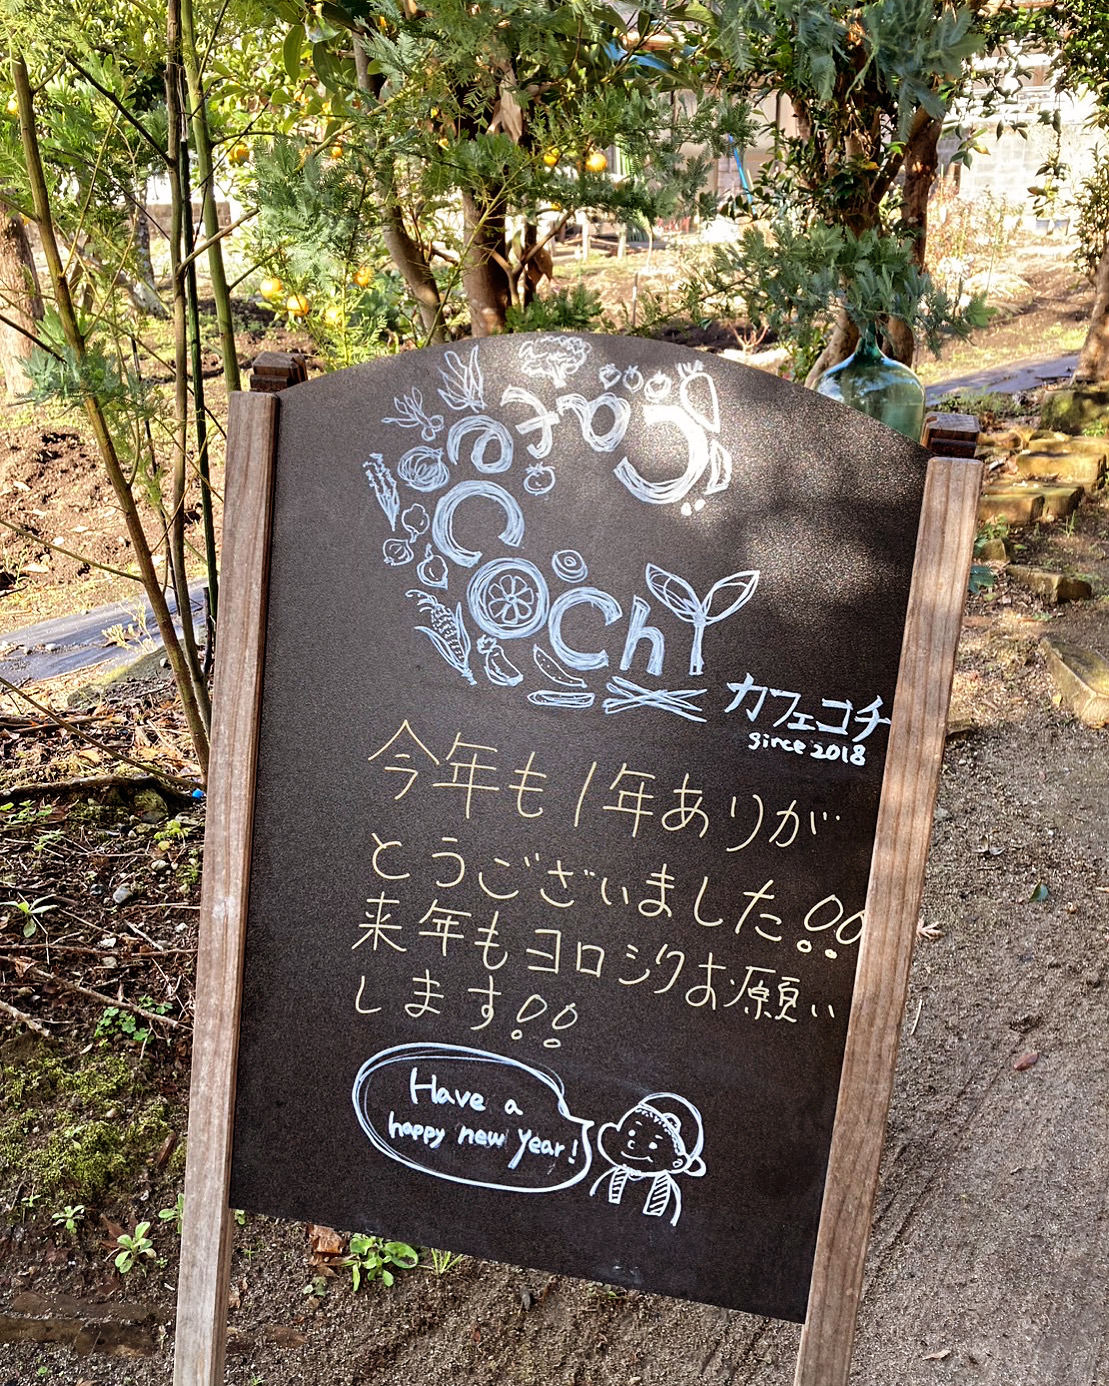 cafe COChY
カフェコチ
since 2018
今年も1年ありが
とうございました!!
来年もヨロシクお願い
します!!
Have a
happy new year!